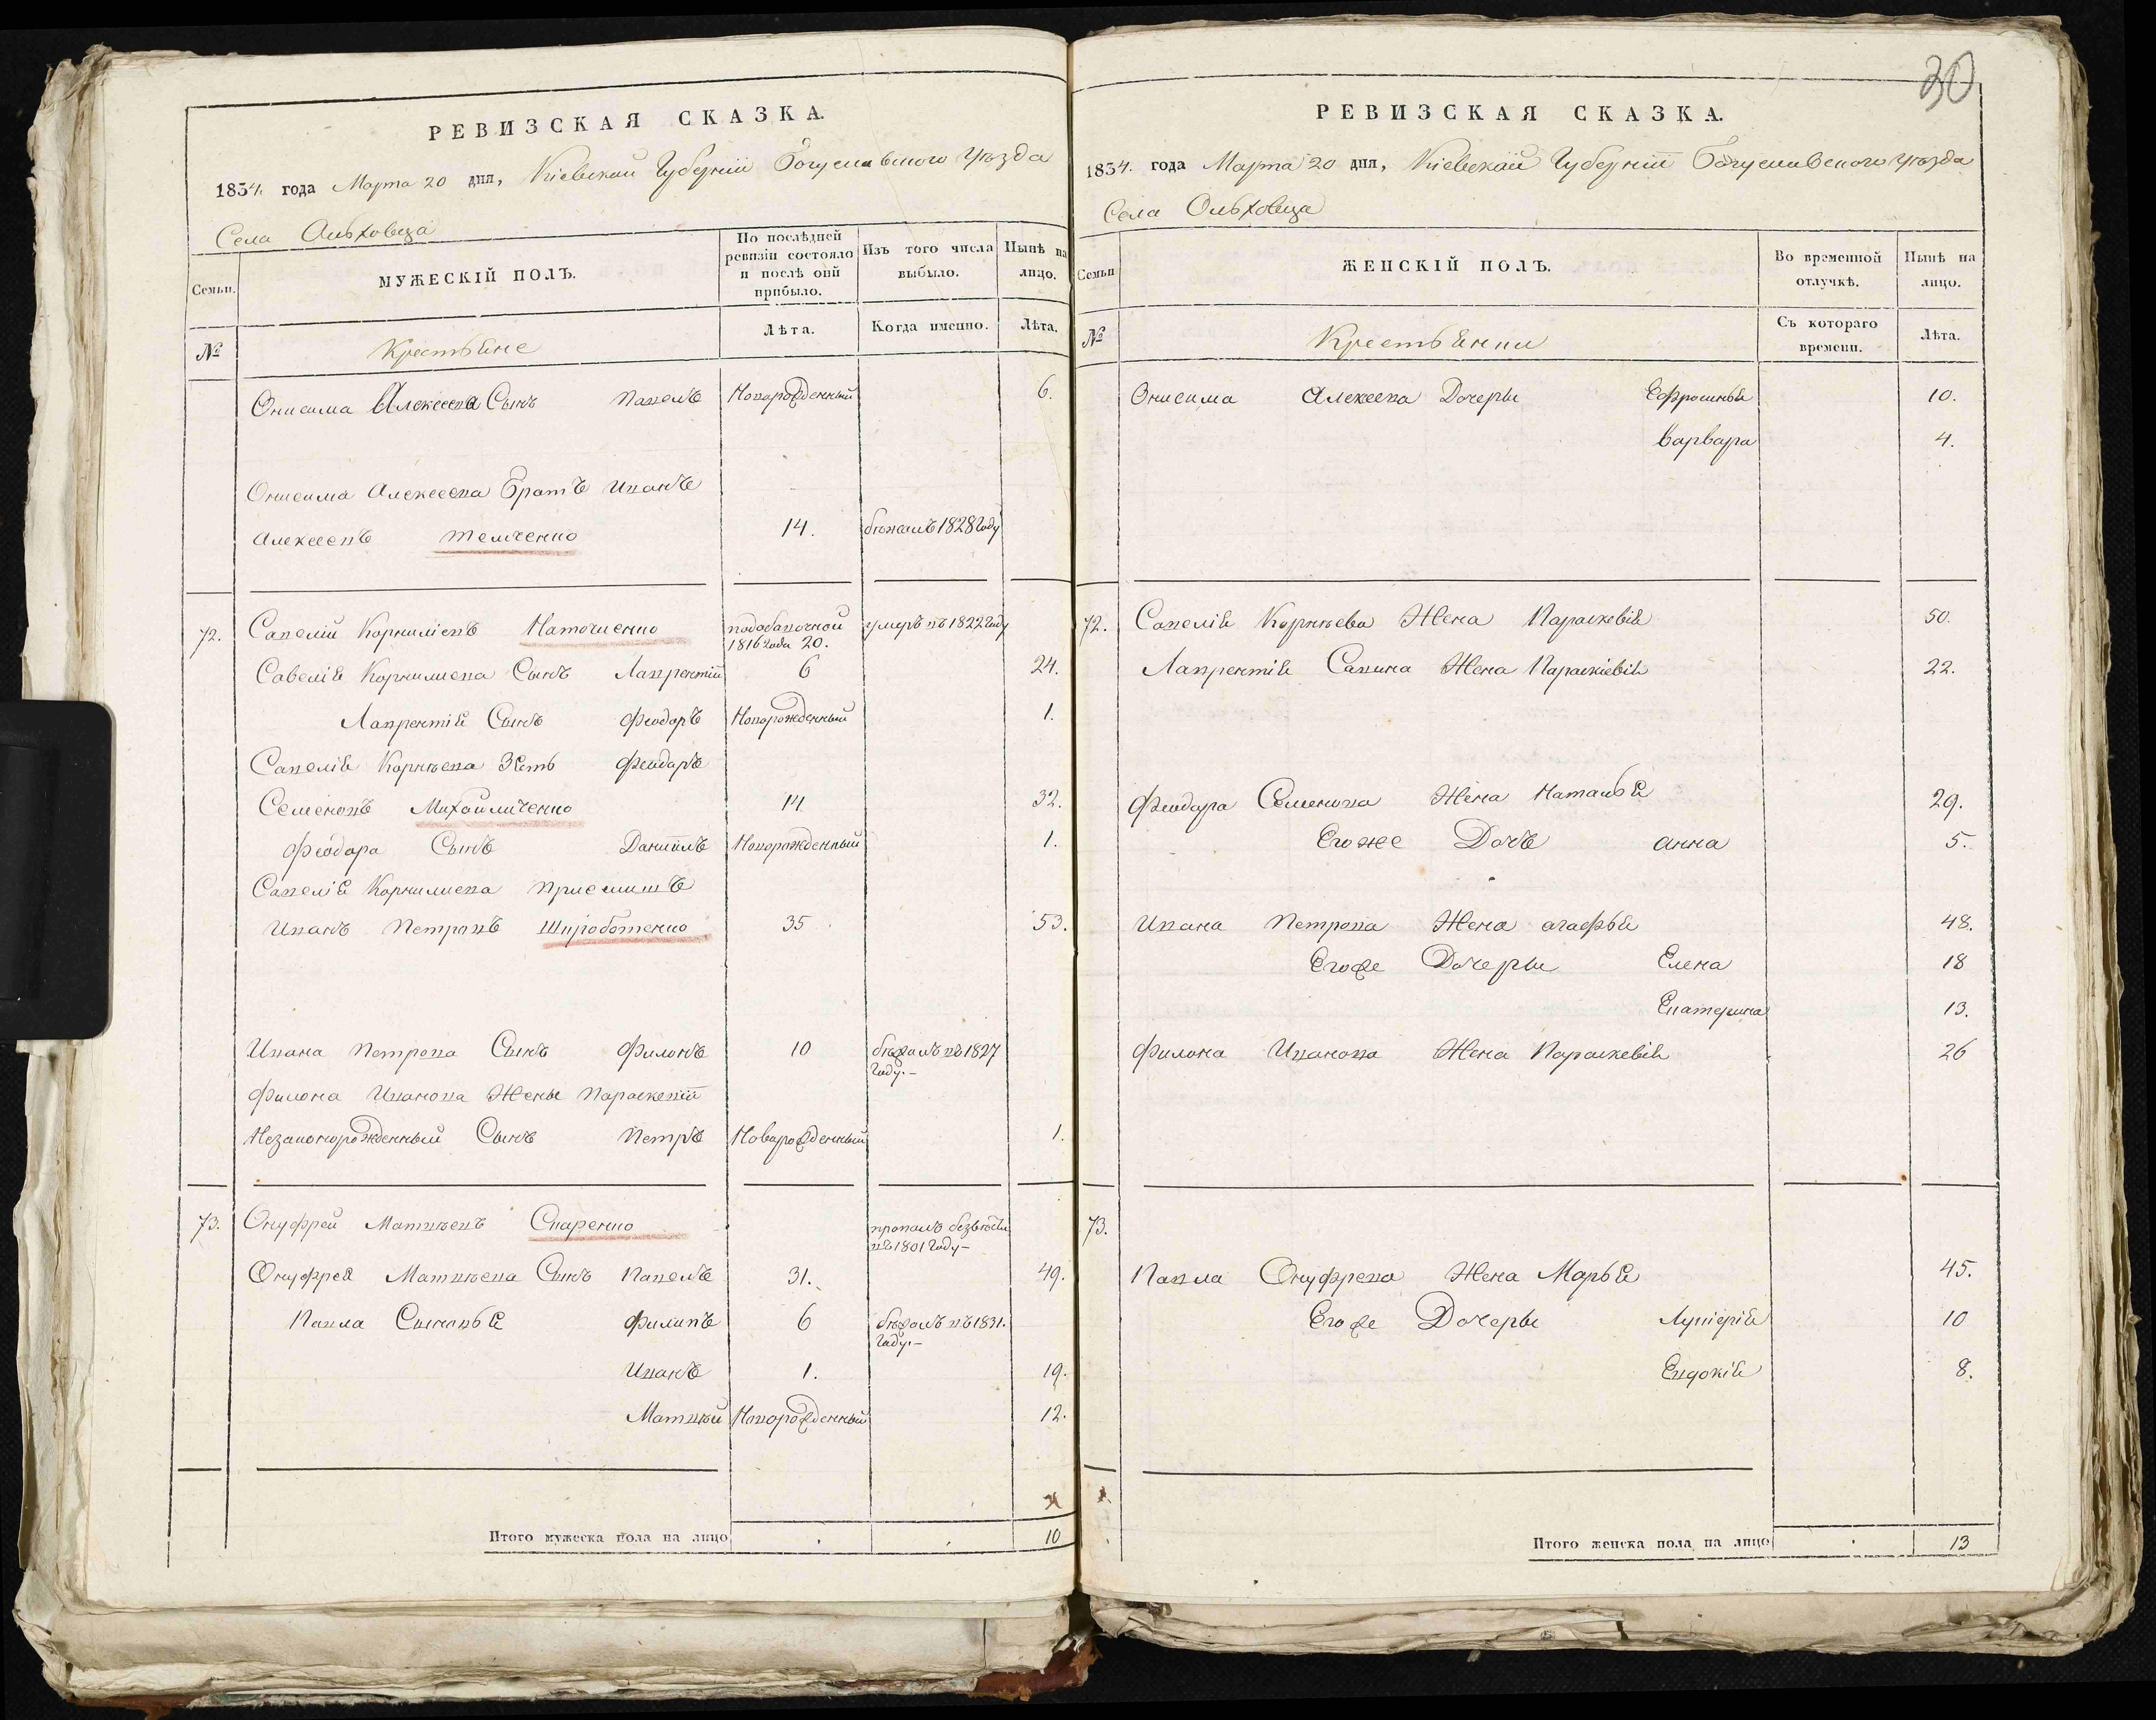 РЕВИЗСКАЯ СКАЗКА.
1834. года Марта 20 дня, Кіевской Губерніи Богуславского Уѣзда
Села Ольховца
Семьи.
МУЖЕСКІЙ ПОЛЪ.
По послѣдней ревизіи состояло и послѣ оной прибыло.
Изъ того числа выбыло.
Нынѣ на лицо.
№
Крестьяне
Лѣта.
Когда именно.
Лѣта.
Онисима Алексеева Сынъ Павелъ Новорожденный 6.
Онисима Алексеева Братъ Иванъ
Алексеевъ 14. бѣжалъ 1828 Году
72. Савелій Корниліевъ 1816 года 20. умеръ въ 1822 Году
Савелія Корнилиева Сынъ Лаврентій 6 24.
Лаврентія Сынъ Феодоръ Новорожденный 1.
Савелія Корнѣева Зять Феодоръ
Семеновъ Михайличенко 14 32.
Феодора Сынъ Даніилъ Новорожденный 1.
Савелія Корнилиева Приемишъ
Иванъ Петровъ 35 53.
Ивана Петрова Сынъ Филонъ 10 бѣжалъ въ 1827
Году.-
Филона Иванова Жены Параскевіи
Незаконорожденный Сынъ Петръ Новорожденный 1.
73. Онуфрей Матвѣевъ пропалъ безвѣсти
въ 1801 Году-
Онуфрея Матвѣева Сынъ Павелъ 31. 49.
Павла Сыновья Филипъ 6 бѣжалъ въ 1831.
Году.-
Иванъ 1. 19.
Матвѣй Новорожденный 12.
Итого мужеска пола на лицо 10
30
РЕВИЗСКАЯ СКАЗКА.
1834. года Марта 20 дня, Кіевской Губерніи Богуславского Уѣзда
Села Ольховца
Семьи
ЖЕНСКІЙ ПОЛЪ.
Во временной отлучкѣ.
Нынѣ на лицо.
№
Крестьянки
Съ котораго времени.
Лѣта.
Онисима Алексеева Дочеры Ефросинья 10.
Варвара 4.
72. Савелія Корнѣева Жена Параскевія 50.
Лаврентія Савина Жена Параскіевія 22.
Феодора Семенова Жена Наталья 29.
Егоже Дочъ Анна 5.
Ивана Петрова Жена Агафья 48.
Егоже Дочеры Елена 18
Екатерина 13.
Филона Иванова Жена Параскевія 26
73.
Павла Онуфрева Жена Марья 45.
Егоже Дочеры 10
Евдокія 8.
Итого женска пола на лицо 13